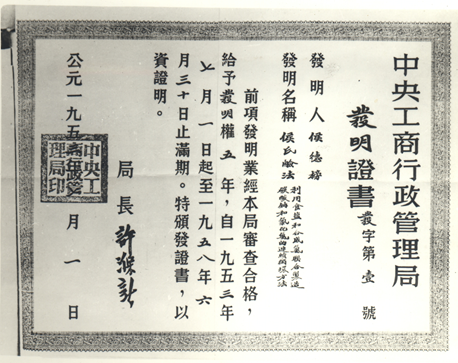 中央工商行政管理局
發明證書 發字第壹號
發明人 侯德榜
發明名稱 侯氏碱法 利用食鹽和
前項發明業經本局審查合格，
給予發明權五年，自一九五三年
七月一日起至一九五八年六
月三十日止滿期。特頒發證書，以
資證明。
局長 許滌新
公元一九五 月一日
中央工商行政管理局印